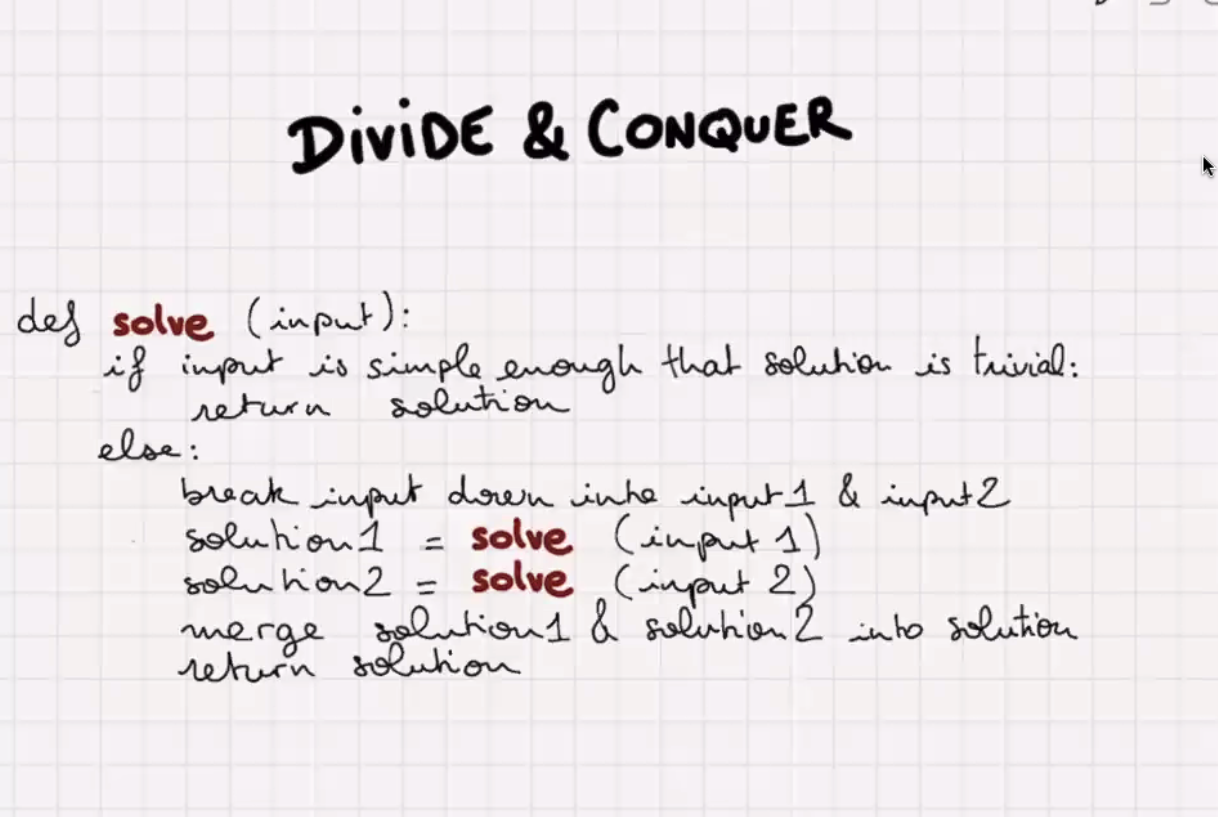 DiViDE & CONQUER
def solve (input):
if input is simple enough that solution is trivial:
return solution
else:
break input down into input1 & input2
solution1 = solve (input 1)
solution2 = solve (input 2)
merge solution1 & solution2 into solution
return solution